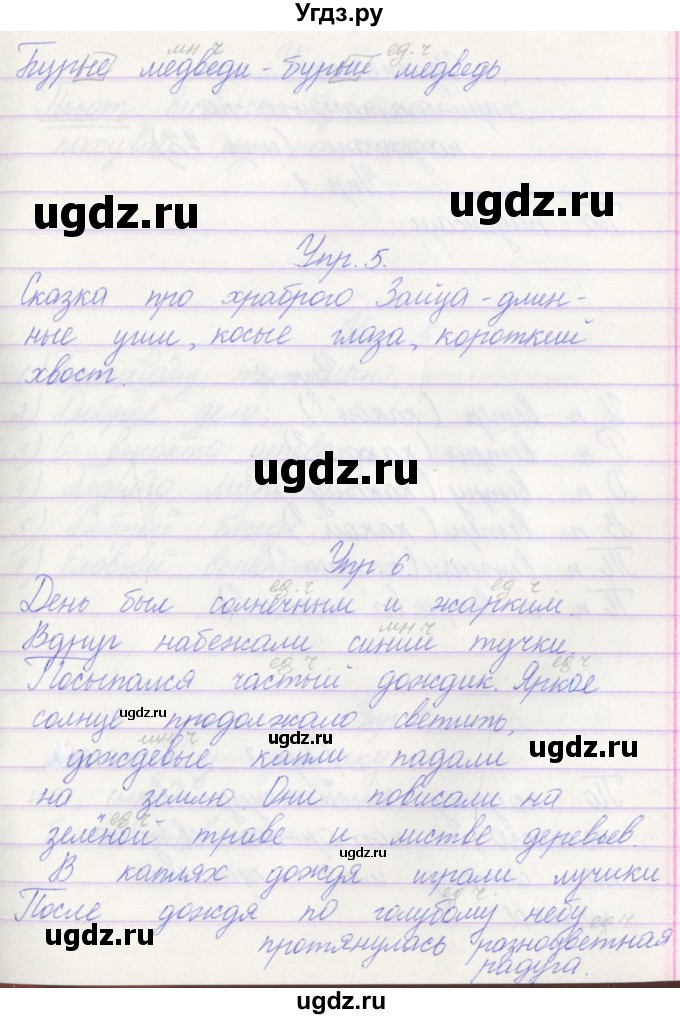 Угдз.ру
мн. ч ед. ч
Бурые медведи - бурый медведь.
ugdz.ru ugdz.ru
Упр. 5.
Сказка про храброго Зайца - длин-
ные уши, косые глаза, короткий
хвост.
ugdz.ru
Упр. 6.
ед. ч ед. ч
День был солнечным и жарким.
мн. ч
Вдруг набежали синии тучки.
ед. ч. ед. ч
Посыпался частый дождик. Яркое
ugdz.ru
солнце продолжало светить,
мн. ч ugdz.ru ugdz.ru
дождевые капли падали
на землю Они повисали на
ед. ч
зелёной траве и листве деревьев.
ugdz.ru
В каплях дождя играли лучики
ед. ч.
После дождя по голубому небу
ugdz.ru ед. ч
протянулась разноцветная
радуга.
ugdz.ru